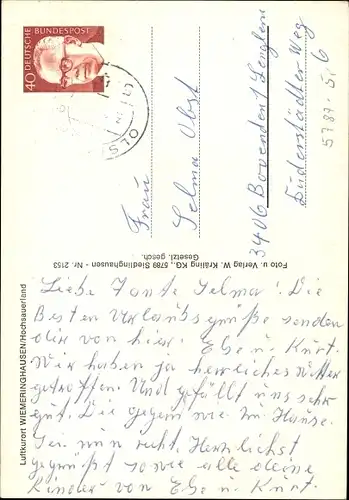 Luftkurort WIEMERINGHAUSEN/Hochsauerland
Liebe Tante Selma! Die
Besten Urlaubsgrüße senden
dir von hier. Else u. Kurt.
Wir haben ja herrliches Wetter
getroffen. Und gefällt uns sehr
gut. Die gegend wie im Hause.
nun recht Herzlichst
gegrüßt sowie alle deine
Kinder von Else u. Kurt
Foto u. Verlag W. Kräling KG., 5789 Siedlinghausen - Nr. 2153
Gesetzl. gesch.
DEUTSCHE BUNDESPOST
40
Frau
Selma Obst
3406 Bovenden 1 Lenglern
Düderstädter Weg
6
5787-5/